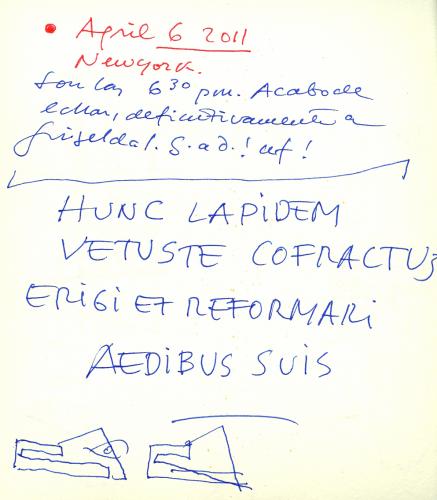 April 6 2011
Newyork.
Son las 6³⁰ pm. Acabo de
echar, definitivamente a
Griselda!. G. a d.! uf!
HUNC LAPIDEM
VETUSTE COFRACTUS
ERIGI ET REFORMARI
AEDIBUS SUIS